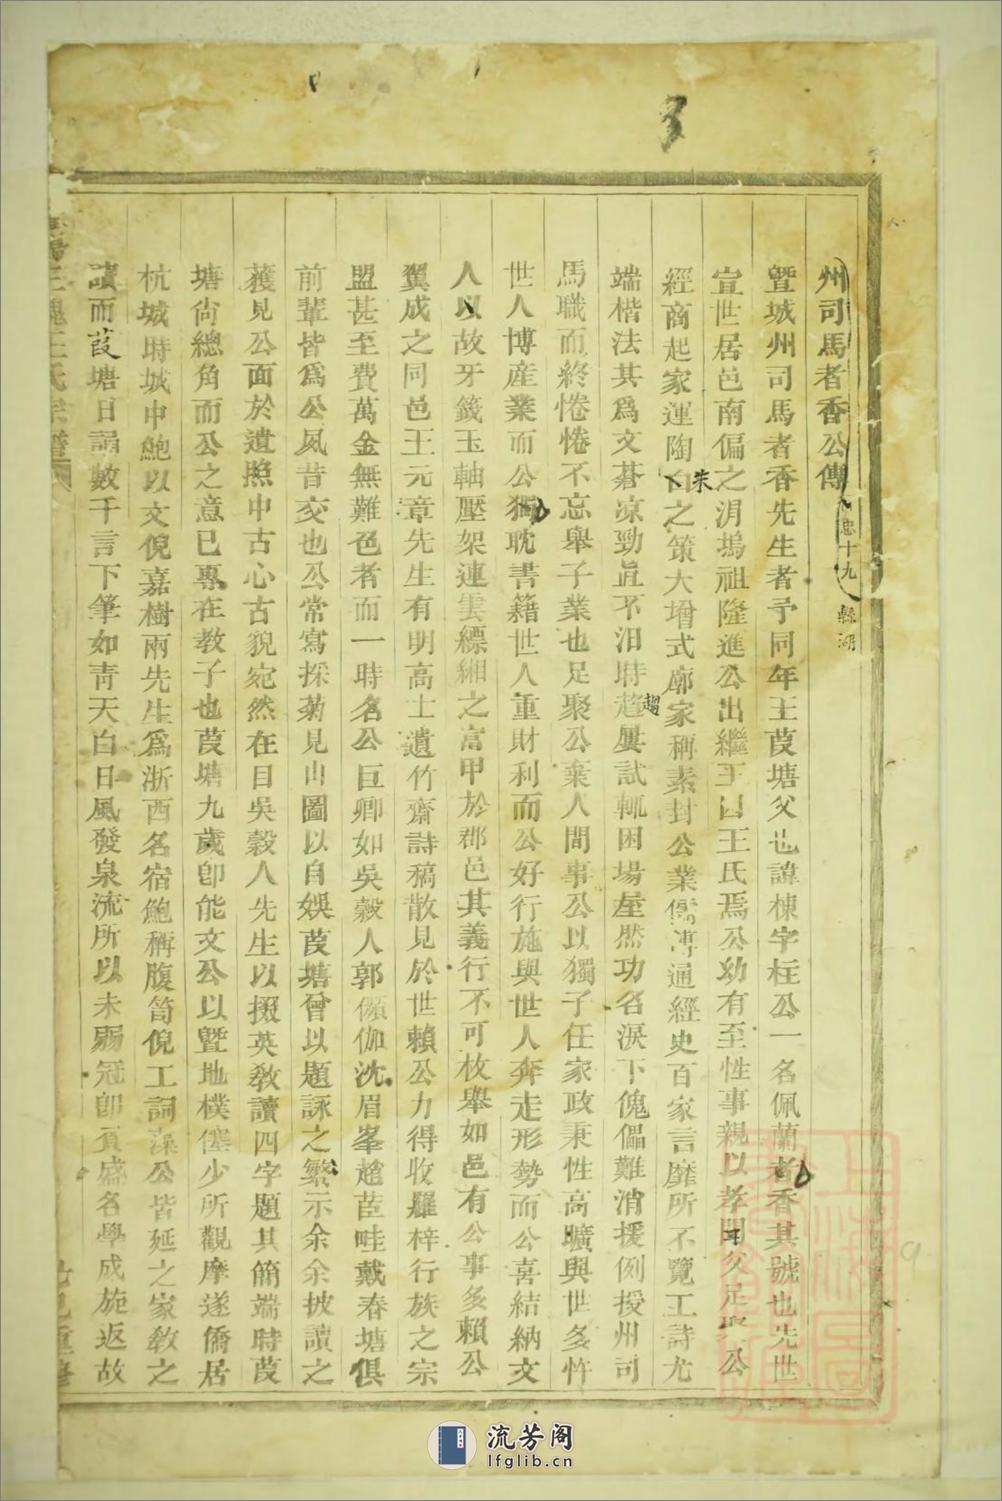 3
州司馬耆香公傳 忠十九 縣湖
暨城州司馬耆香先生者予同年王葭塘父也諱棟字柱公一名佩蘭耆香其號也先世
宣世居邑南偏之涓塢祖隆進公出繼王 王氏焉公幼有至性事親以孝聞父足聚公
經商起家運陶白之策大增式廓家稱素封公業儒博通經史百家言靡所不覽工詩尤
朱
端楷法其爲文蒼凉勁直不汨時趨屢試輒困場屋然功名淚下傀儡難消援例授州司
趨
馬職而終惓惓不忘舉子業也足聚公棄人間事公以獨子任家政秉性高曠與世多忤
世人博産業而公獨耽書籍世人重財利而公好行施與世人奔走形勢而公喜結納文
人以故牙籤玉軸壓架連雲縹緗之富甲於郡邑其義行不可枚舉如邑有公事多賴公
翼成之同邑王元章先生有明高士遺竹齋詩稿散見於世賴公力得收羅梓行族之宗
盟甚至費萬金無難色者而一時名公巨卿如吳穀人郭頻伽沈眉峯趙苣畦戴春塘俱
前輩皆爲公夙昔交也公常寫採菊見山圖以自娛葭塘曾以題詠之繁示余余披讀之
獲見公面於遺照中古心古貌宛然在目吳穀人先生以掇英敎讀四字題其簡端時葭
塘尙總角而公之意已專在敎子也葭塘九歲卽能文公以暨地樸僿少所觀摩遂僑居
杭城時城中鮑以文倪嘉樹兩先生爲浙西名宿鮑稱腹笥倪工詞藻公皆延之家敎之
讀而葭塘日誦數千言下筆如靑天白日風發泉流所以未弱冠卽負盛名學成旋返故
王氏宗譜
重修
流芳阁
lfglib.cn